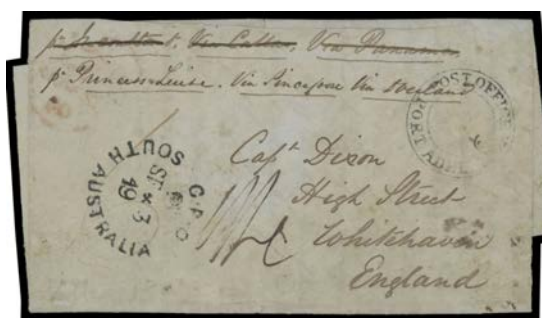 Via Panama
pr Princess Louise. Via Sincapore Via overland
POST OFFICE
PORT ADEL
G.P.O
SE * 3
19
SOUTH AUSTRALIA
Capt Dixon
High Street
Whitehaven
England